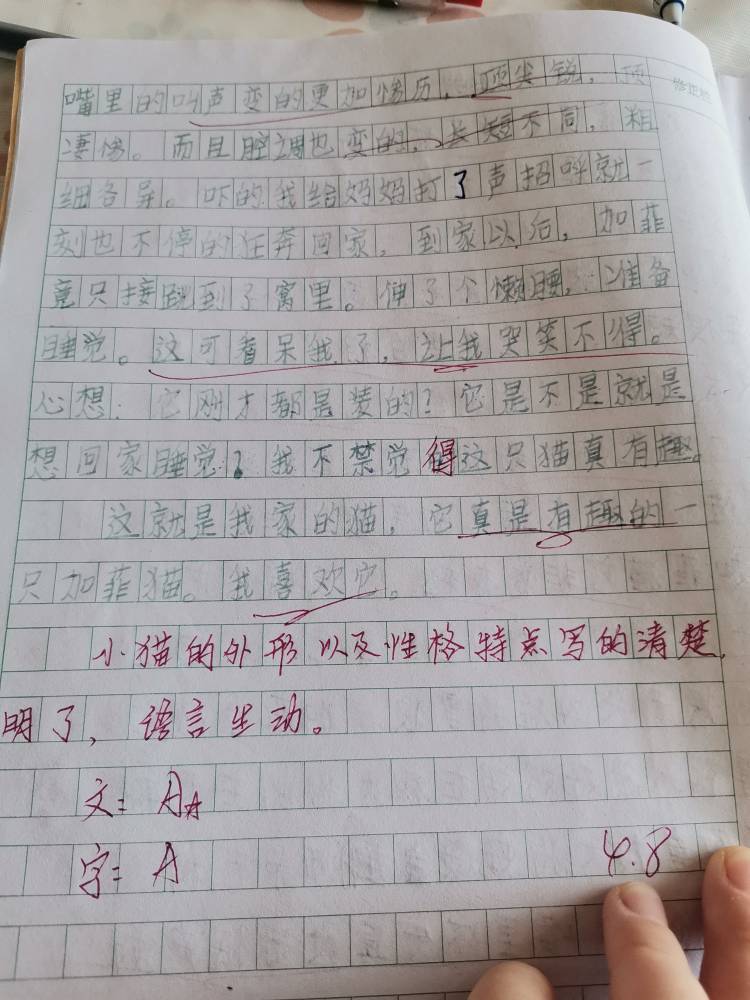 嘴里的叫声变的更加惨历，更尖锐，
凄惨。而且腔调也变的，长短不同，粗
细各异。吓的我给妈妈打了声招呼就一
刻也不停的狂奔回家，到家以后，加菲
竟只接跑到了窝里。伸了个懒腰，准备
睡觉。这可着呆我了，让我哭笑不得。
心想：它刚才都是装的？它是不是就是
想回家睡觉？我不禁觉得这只猫真有趣。
这就是我家的猫，它真是有趣的一
只加菲猫。我喜欢它。
小猫的外形以及性格特点写的清楚
明了，语言生动。
文：A
字：A
4.8